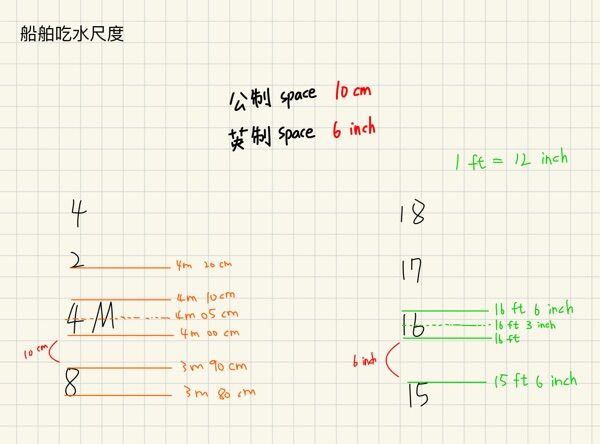 船舶吃水尺度
公制 space 10 cm
英制 space 6 inch
1 ft = 12 inch
4
2
4m 20 cm
4m 10 cm
4 M
4m 05 cm
4m 00 cm
10 cm
3m 90 cm
8
3m 80 cm
18
17
16 ft 6 inch
16
16 ft 3 inch
16 ft
6 inch
15 ft 6 inch
15